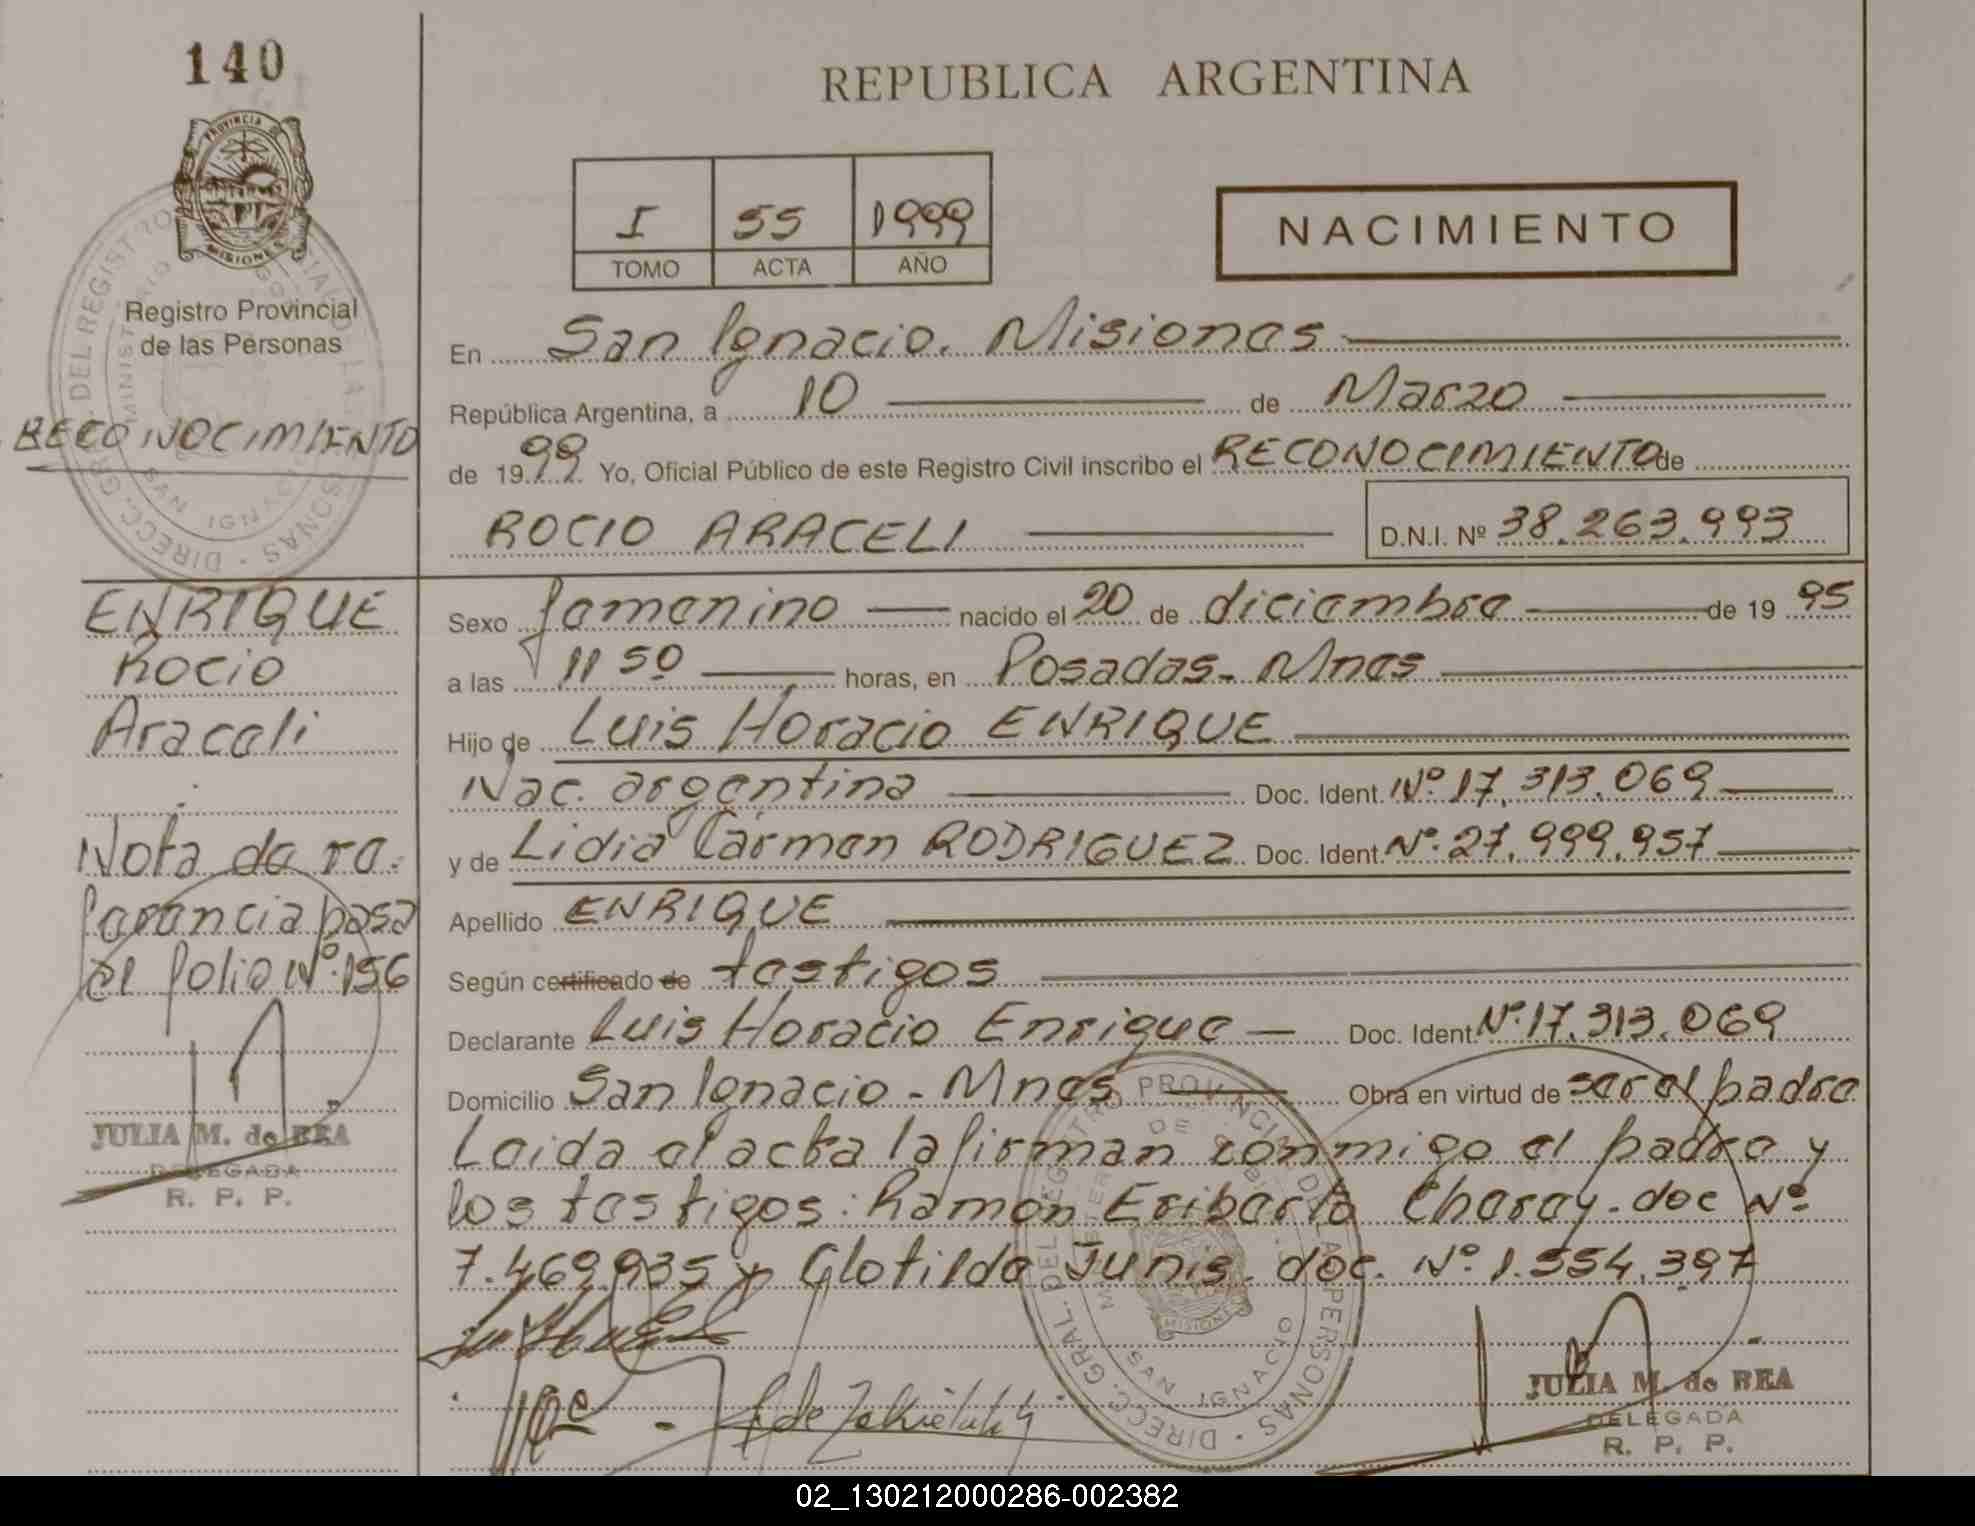 140
REPUBLICA ARGENTINA
PROVINCIA DE
MISIONES
I 55 1999
TOMO ACTA AÑO
NACIMIENTO
Registro Provincial
de las Personas
RECONOCIMIENTO
En San Ignacio. Misiones
República Argentina, a 10 de Marzo
de 1999 Yo, Oficial Público de este Registro Civil inscribo el RECONOCIMIENTO de
ROCIO ARACELI D.N.I. Nº 38.263.993
ENRIQUE
Rocio
Araceli
Nota de re.
ferencia pasa
al folio Nº 156
JULIA M. de REA
DELEGADA
R. P. P.
Sexo femenino nacido el 20 de diciembre de 1995
a las 11 50 horas, en Posadas. Mnes
Hijo de Luis Horacio ENRIQUE
Nac. argentina Doc. Ident. Nº 17.313.069
y de Lidia Carmen RODRIGUEZ Doc. Ident. Nº 27.999.957
Apellido ENRIQUE
Según certificado de testigos
Declarante Luis Horacio Enrique Doc. Ident. Nº 17.313.069
Domicilio San Ignacio - Mnes Obra en virtud de ser el padre
Leida el acta la firman conmigo el padre y
los testigos: Ramon Eriberto Charay. doc Nº
7.469.935 y Clotilde Junis. doc. Nº 1.554.397
DIRECC. GRAL. DEL REGISTRO PROVINCIAL DE LAS PERSONAS
SAN IGNACIO
MISIONES
JULIA M. de REA
DELEGADA
R. P. P.
02_130212000286-002382